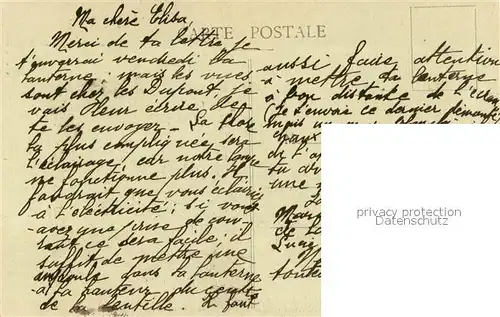 Ma chère Elisa,
CARTE POSTALE
Merci de ta lettre, je
t'enverrai vendredi la
lanterne, mais les vues
sont chez les Dupont, je
vais leur écrire de
te les envoyer - La chose
la plus compliquée sera
l'éclairage, car notre
ne fonctionne plus. Il
faudrait que vous éclairiez
à l'électricité; si vous
avez une prise de cou-
rant ce sera facile; il
suffit de mettre une
ampoule dans la lanterne
à la hauteur du centre
de la lentille. Il faut
aussi faire attention
à mettre la lanterne
à bon distance de l'écran
(Je t'envoie ce dernier démonté
mais un
de l'a
tu
une
ce
toute
privacy protection
Datenschutz